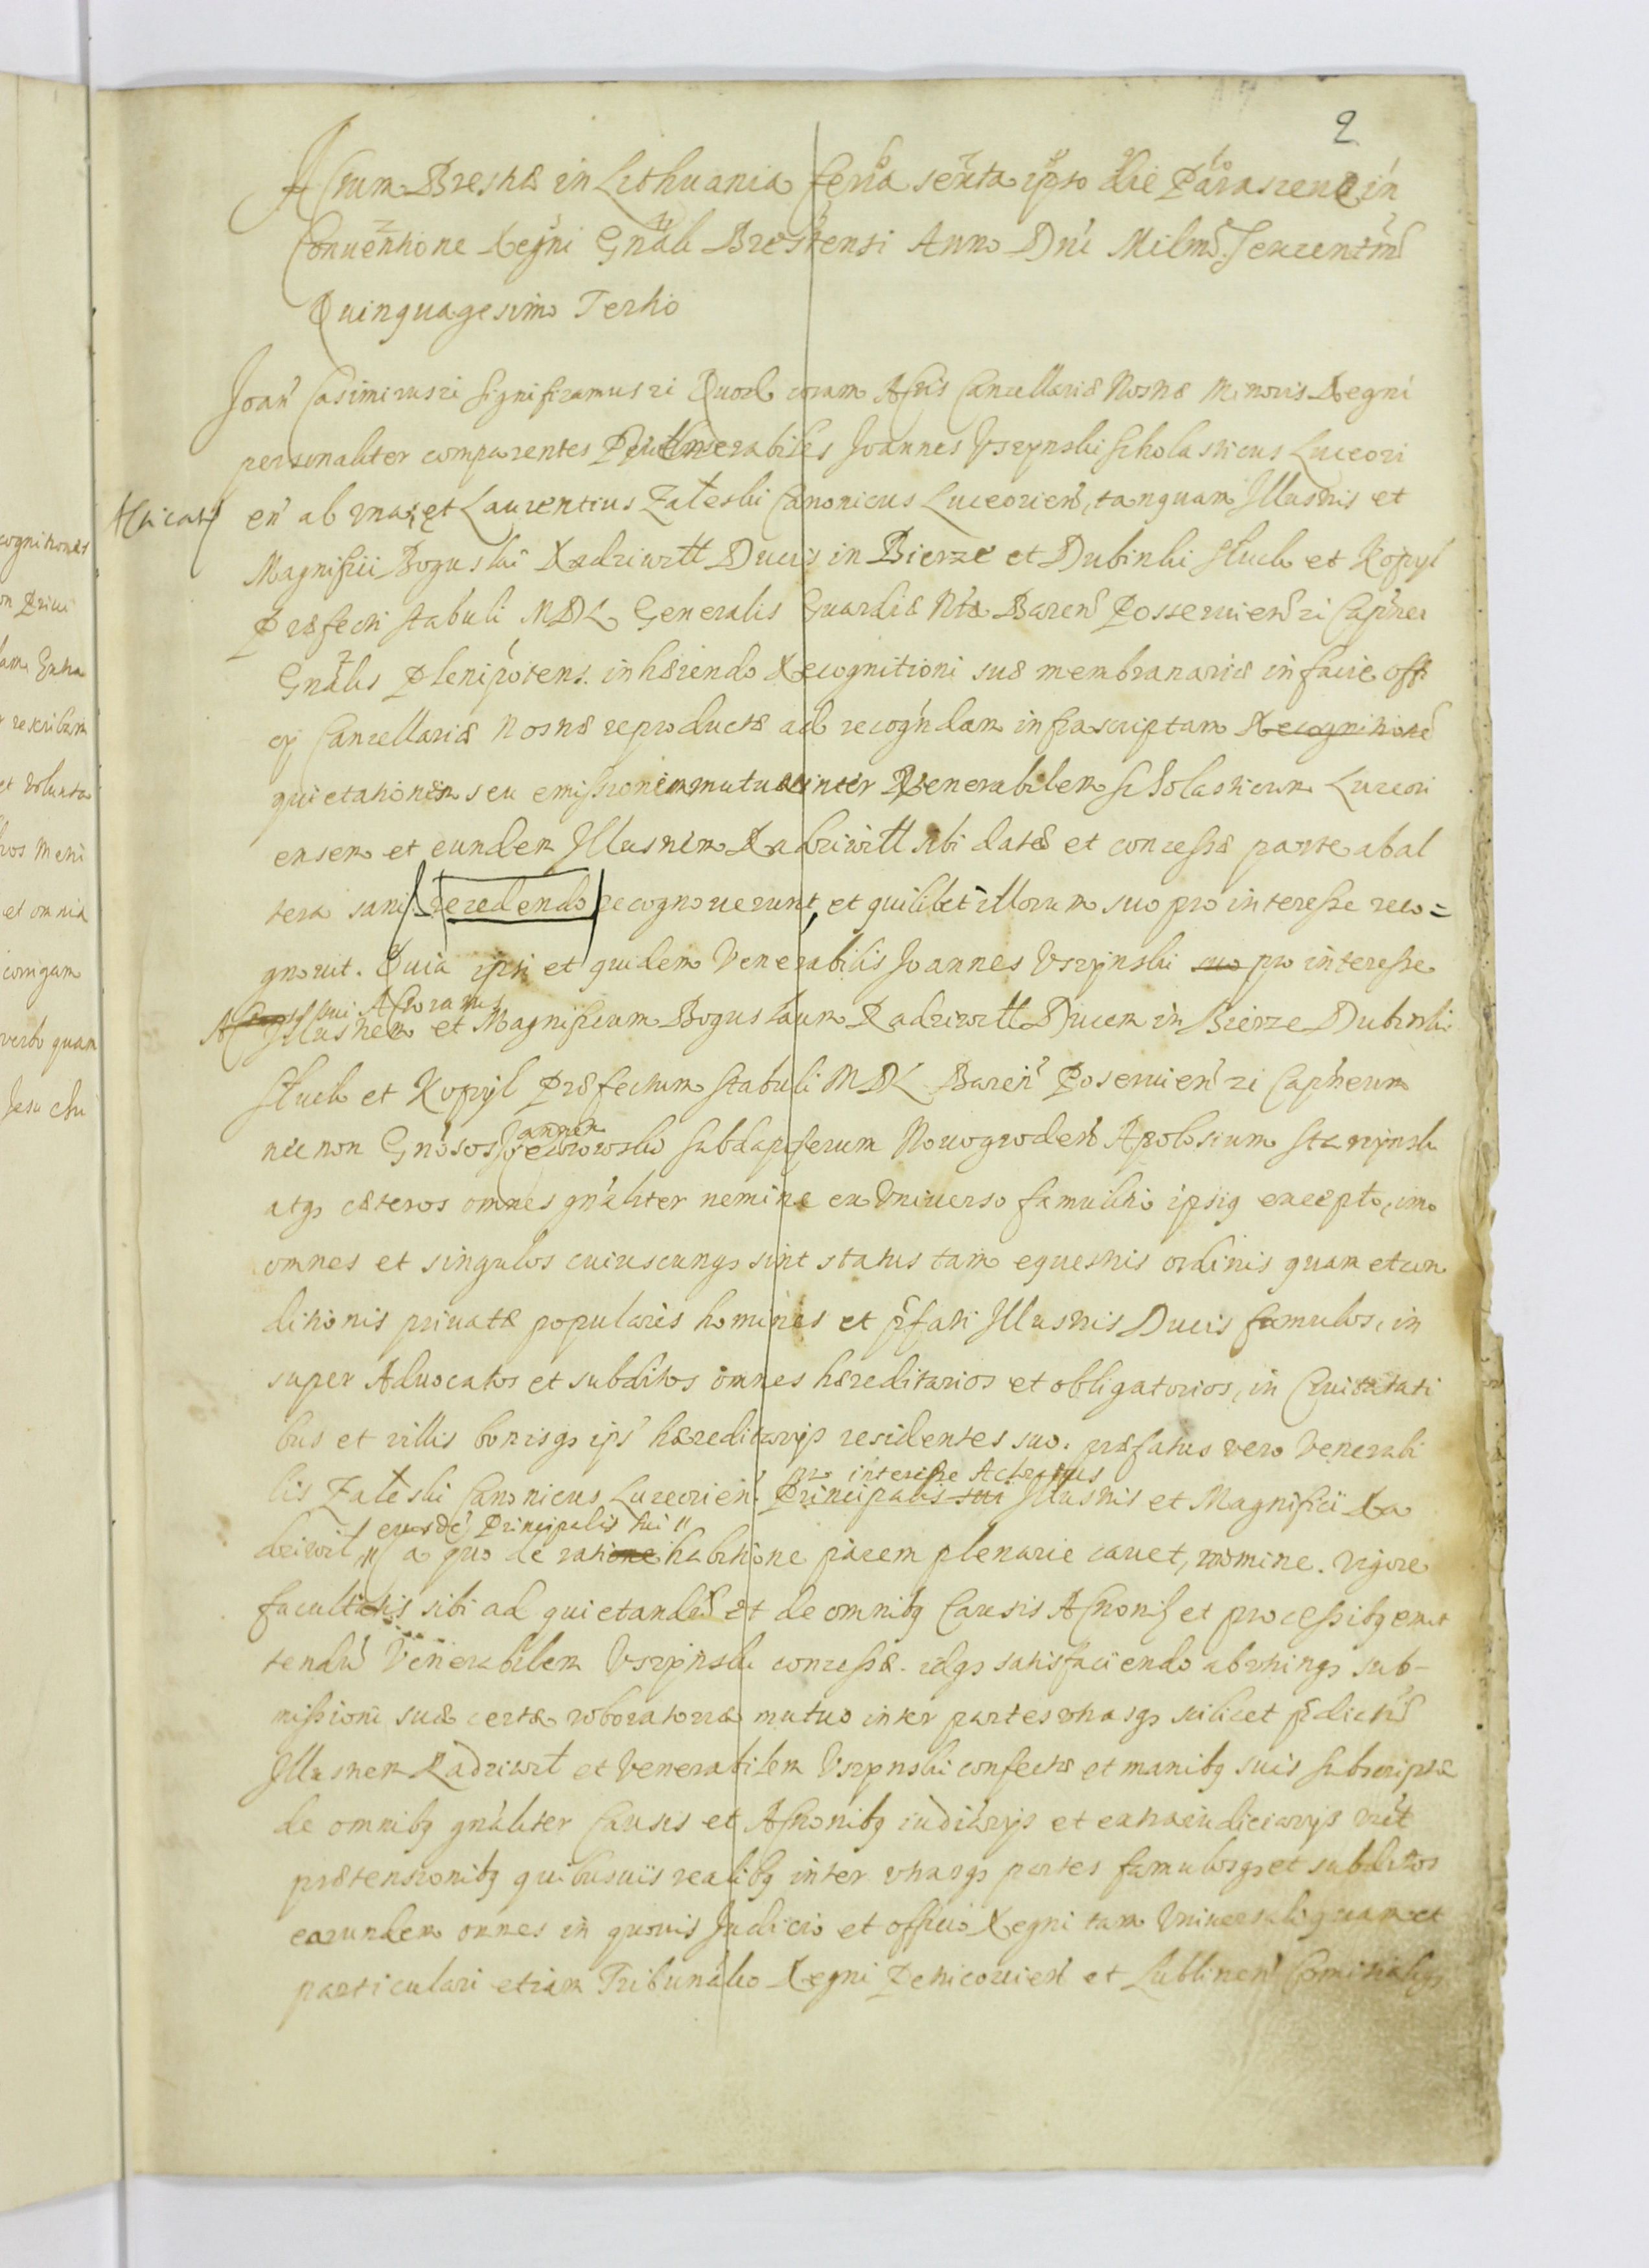 2
Actum Brestæ in Lithuania feria sexta ipso die Parasceue in
Conuentione Regni Gnali Brestensi Anno Dni Milmo Sexcentmo
Quinquagesimo Tertio
Joan Casimirus zi significamus zi Quod coram Actis Cancellariæ Nostræ Minoris Regni
personaliter comparentes Venerabiles Joannes Uszynski Scholasticus Luceori
en ab una, et Laurentius Załeski Canonicus Luceorien, tanquam Illustris et
Magnifici Boguslai Radziwiłł Ducis in Bierze et Dubinki Słuck et Kopyl
Præfecti stabuli MDL Generalis Guardiæ Ntæ Baren Posseruien zi Capnei
Gnalis Plenipotens. inhærendo Recognitioni suæ membranariæ in facie off
cij Cancellariæ Nostræ reproductæ ad recogndam infrascriptam Recognitione
quietationem seu emissionem mutua inter Venerabilem Scholasticum Luceori
ensem et eundem Illustrem Radziwiłł sibi datæ et concessæ parte ab al
tera recedendo recognouerunt, et quilibet illorum suo pro interesse reco=
gnouit. Quia ipsi et quidem Venerabilis Joannes Uszynski suo pro interesse
sui Actoratus
Illustrem et Magnificum Boguslaum Radziwiłł Ducem in Bierze Dubinki
Słuck et Kopyl Præfectum stabuli MDL Baren Poseruien zi Capneum
nec non Gnosos subdapiferum Nouogroden
atq cæteros omnes gnaliter nemine ex Vniuerso famulitio ipsiq excepto, imo
omnes et singulos cuiuscunq sint status tam equestris ordinis quam et con
ditionis priuatæ popularis homines et pfati Illustris Ducis famulos, in
super Aduocatos et subditos omnes hæreditarios et obligatorios, in Ciuitatati
bus et villis bonisq ips hæreditarijs residentes suo. præfatus vero Venerabi
pro interesse Actoratus
lis Załeski Canonicus Luceorien. Principalis sui Illustris et Magnifici Ra
eiusde Principalis sui
dziwił a quo de ratione habitione pacem plenarie cauet, nomine. vigore
facultatis sibi ad quietandu et de omnibq Causis Actionis et processibq emit
tendu Venerabilem Uszynski concessæ. idq satisfaciendo ab utrinq sub-
missioni suæ certæ roboratoriæ mutuo inter partes utrasq scilicet pdictu
Illustrem Radziwił et Venerabilem Uszynski confectæ et manibq suis subscriptæ
de omnibq gnaliter Causis et Actionibq iudiciarijs et extraiudiciarijs
prætensionibq quibusuis realibq inter utrasq partes famulosq et subditos
earundem omnes in quouis Judicio et officio Regni tam Vniuersali quam et
particulari etiam Tribunalio Regni Petricouien et Lublinen